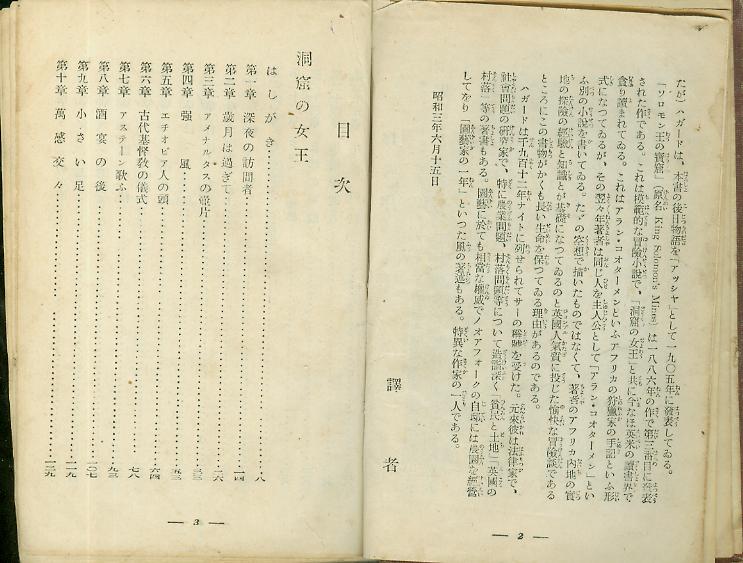 だが）ハガードは、本書の後日物語を「アッシャ」として一九〇五年に發表してゐる。
「ソロモン王の寶窟」（原名 King Solomon's Mines）は一八八六年の作で第三番目に發表
された作である。これは模範的な冒險小説で、「洞窟の女王」と共に今なほ英米の讀書界で
貪り讀まれてゐる。これはアラン・コオターメンといふアフリカの狩獵家の手記といふ形
式になつてゐるが、その翌々年著者は同じ人を主人公として「アラン・コオターメン」とい
ふ別の小説を書いてゐる。たゞの空想で描いたものではなくて、著者のアフリカ内地の實
地の探險の經驗と知識とが基礎になつてゐるのと英國人氣質に投じた愉快な冒險談である
ところにこの書物がかくも長い生命を保つてゐる理由があるのである。
ハガードは千九百十二年ナイトに列せられてサーの稱號を受けた。元來彼は法律家で、
社會問題の研究家で、特に農業問題、村落問題等について造詣深く「貧民と土地」「英國の
村落」等の著書もある。園藝に於ても相當な權威でノオアフォークの自邸には農園を經營
してをり「園藝家の一年」といつた風の著述もある。特異な作家の一人である。
昭和三年六月十五日
譯者
— 2 —
目次
洞窟の女王
はしがき……八
第一章 深夜の訪問者……一四
第二章 歳月は過ぎて……二六
第三章 アメナルタスの壺片……三三
第四章 强風……五三
第五章 エチオピア人の頭……六四
第六章 古代基督教の儀式……七八
第七章 アステーン歌ふ……九三
第八章 酒宴の後……一〇七
第九章 小さい足……一一九
第十章 萬感交々……一二九
— 3 —